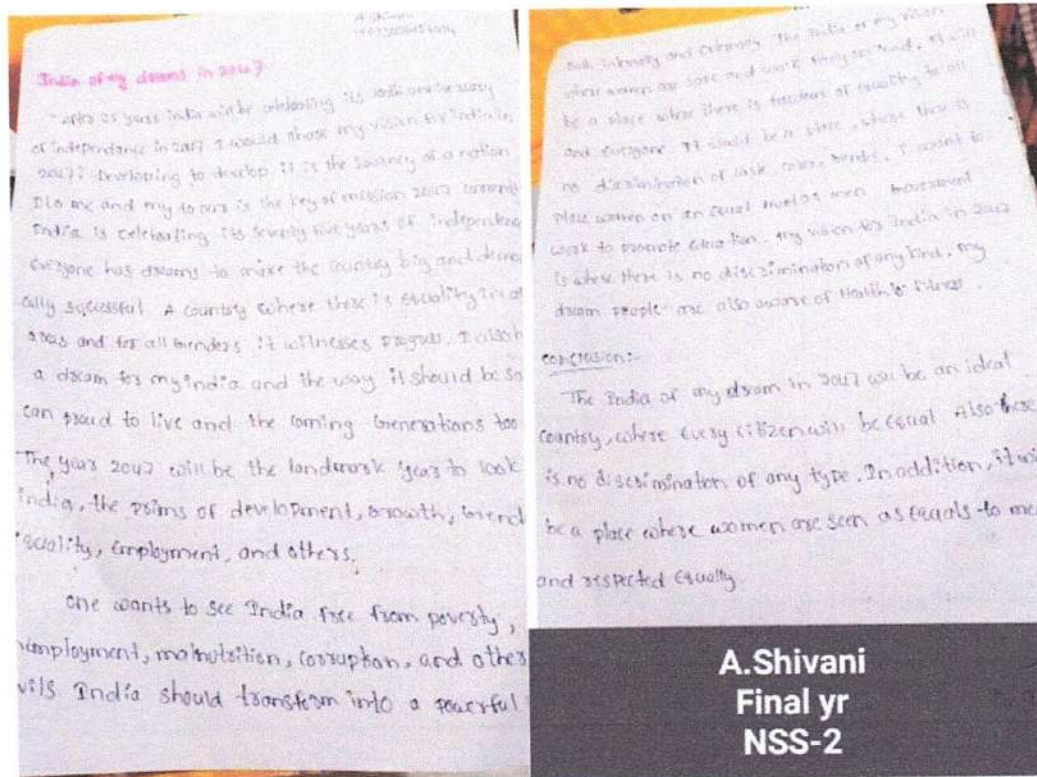 A.Shivani
India of my dreams in 2047
after 25 years India will be celebrating its 100th anniversary
of independence in 2047 I would share my vision for india in
2047: Developing to develop it is the journey of a nation
me and my to our is the key of mission 2047 currently
India is celebrating its seventy five years of independenc
Everyone has dreams to make the country big and
cally successful A country where there is equality in
areas and for all Genders it witnesses progress. I also h
a dream for my india and the way it should be so
can proud to live and the coming Generations too
The year 2047 will be the landmark year to look
india, the prims of development, Growth, Gend
equality, Employment, and others.
one wants to see India free from poverty,
employment, malnutrition, corruption, and other
vils India should transform into a powerful
Both internally and Externally The India of my vision
where women are safe and work on road. It will
be a place where there is freedom of equality to all
and everyone It would be a place, where there is
no discrimination of cast, color, Gender. I want to
Place women on an equal level as men Government
work to promote education. my vision for India in 2047
is where there is no discrimination of any kind. my
dream people are also aware of Health & fitness.
conclusion:-
The India of my dream in 2047 will be an ideal
Country, where Every citizen will be equal Also there
is no discrimination of any type. In addition, it wi
be a place where women are seen as equals to me
and respected Equally
A.Shivani
Final yr
NSS-2